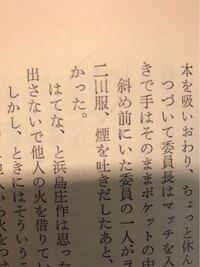 本を吸いおわり、ちょっと休ん
つづいて委員長はマッチを入
きで手はそのままポケットの中
斜め前にいた委員の一人がラ
二川服、煙を吐きだしたあと、
かった。
はてな、と浜島庄作は思った
出さないで他人の火を借りてい
しかし、ときにはそういうこ